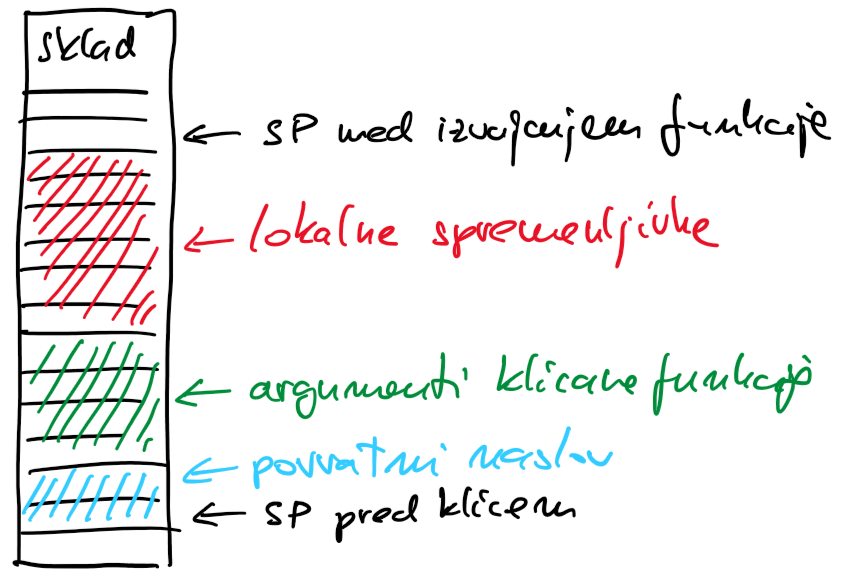 sklad
SP med izvajanjem funkcije
lokalne spremenljivke
argumenti klicane funkcije
povratni naslov
SP pred klicem